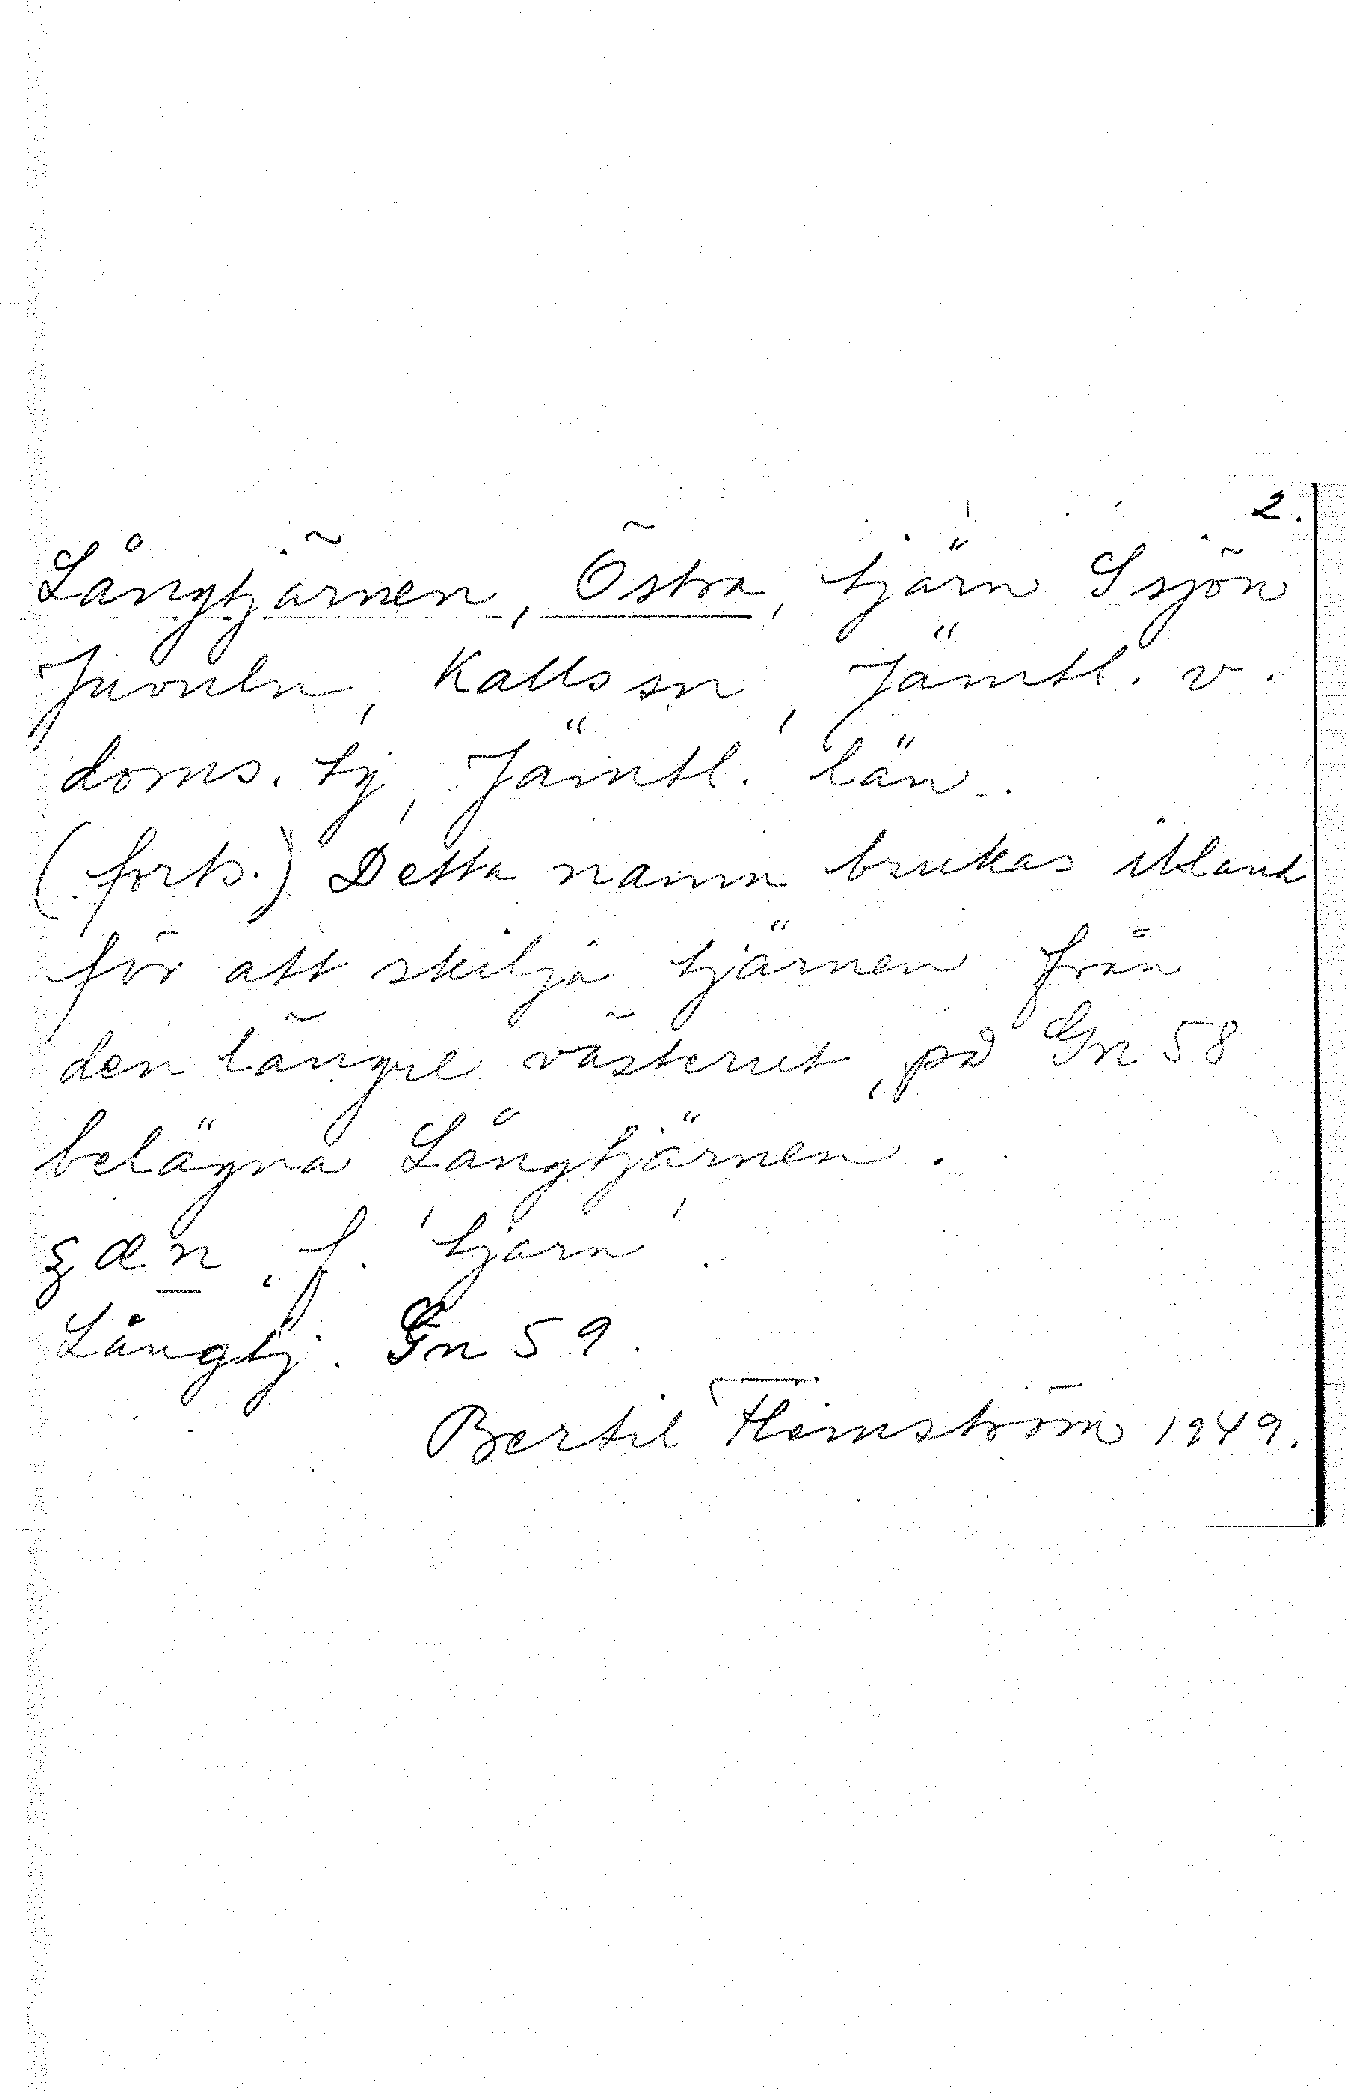 2.
Långtjärnen, Östra, tjärn S sjön
Juvuln, Kalls sn, Jämtl. v.
doms. tg, Jämtl. län.
(forts.) Detta namn brukas ibland
för att skilja tjärnen från
den längre västerut, på Gn 58
belägna Långtjärnen.
f. 'tjärn'.
Långtj. Gn 59.
Bertil Flemström 1949.